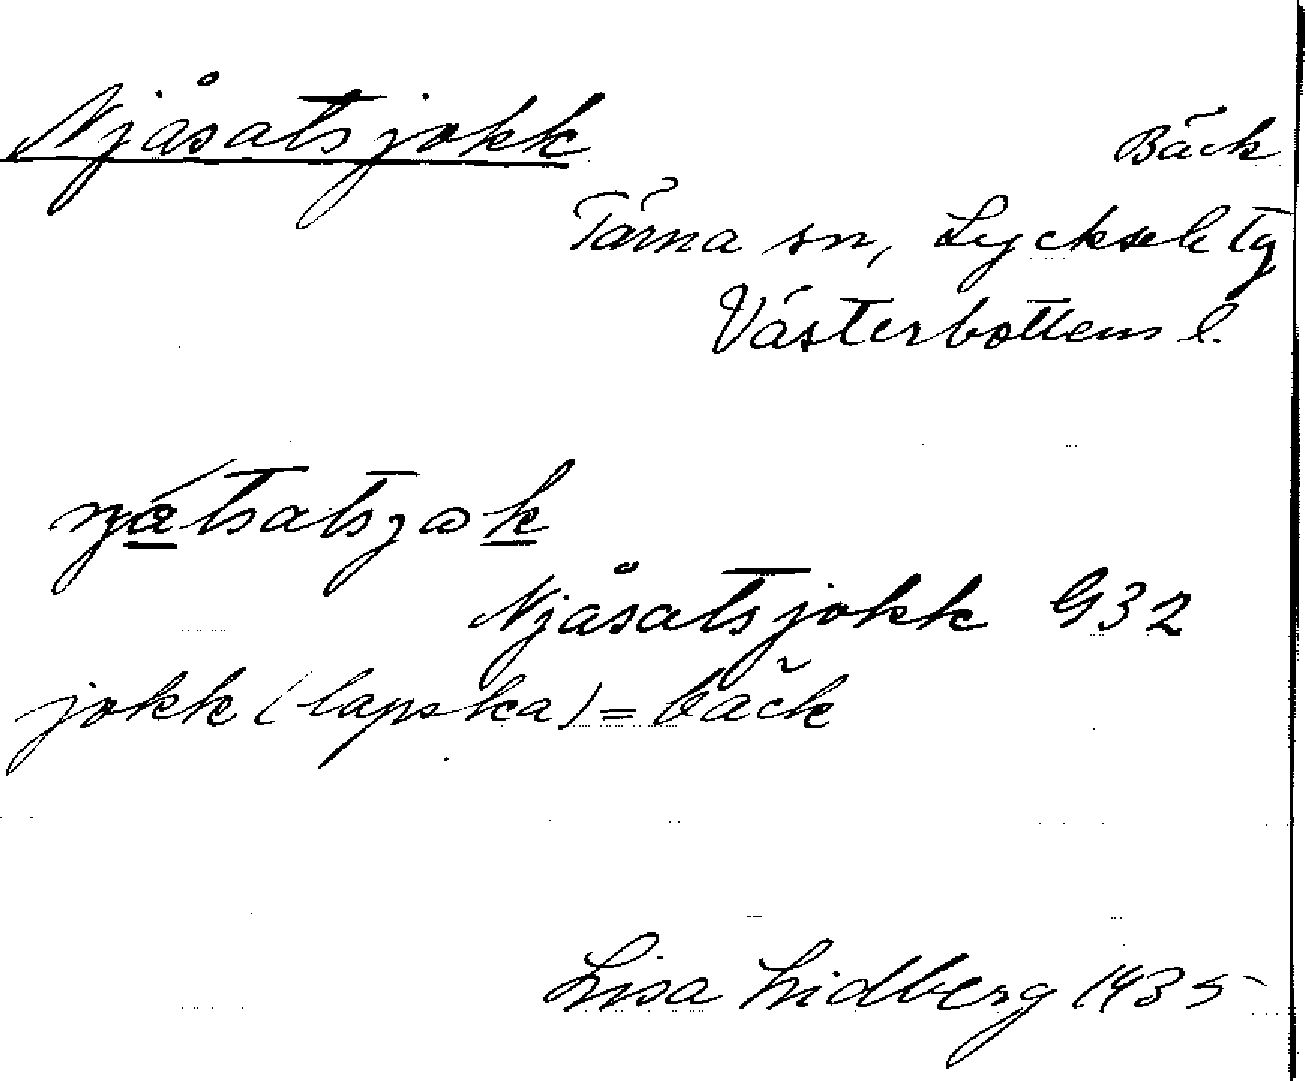 Njåsatsjokk Bäck
Tärna sn, Lycksele tg
Västerbottens l.
njátsatsjok
Njåsatsjokk G32
jokk (lapska) = bäck
Lisa Lidberg 1935